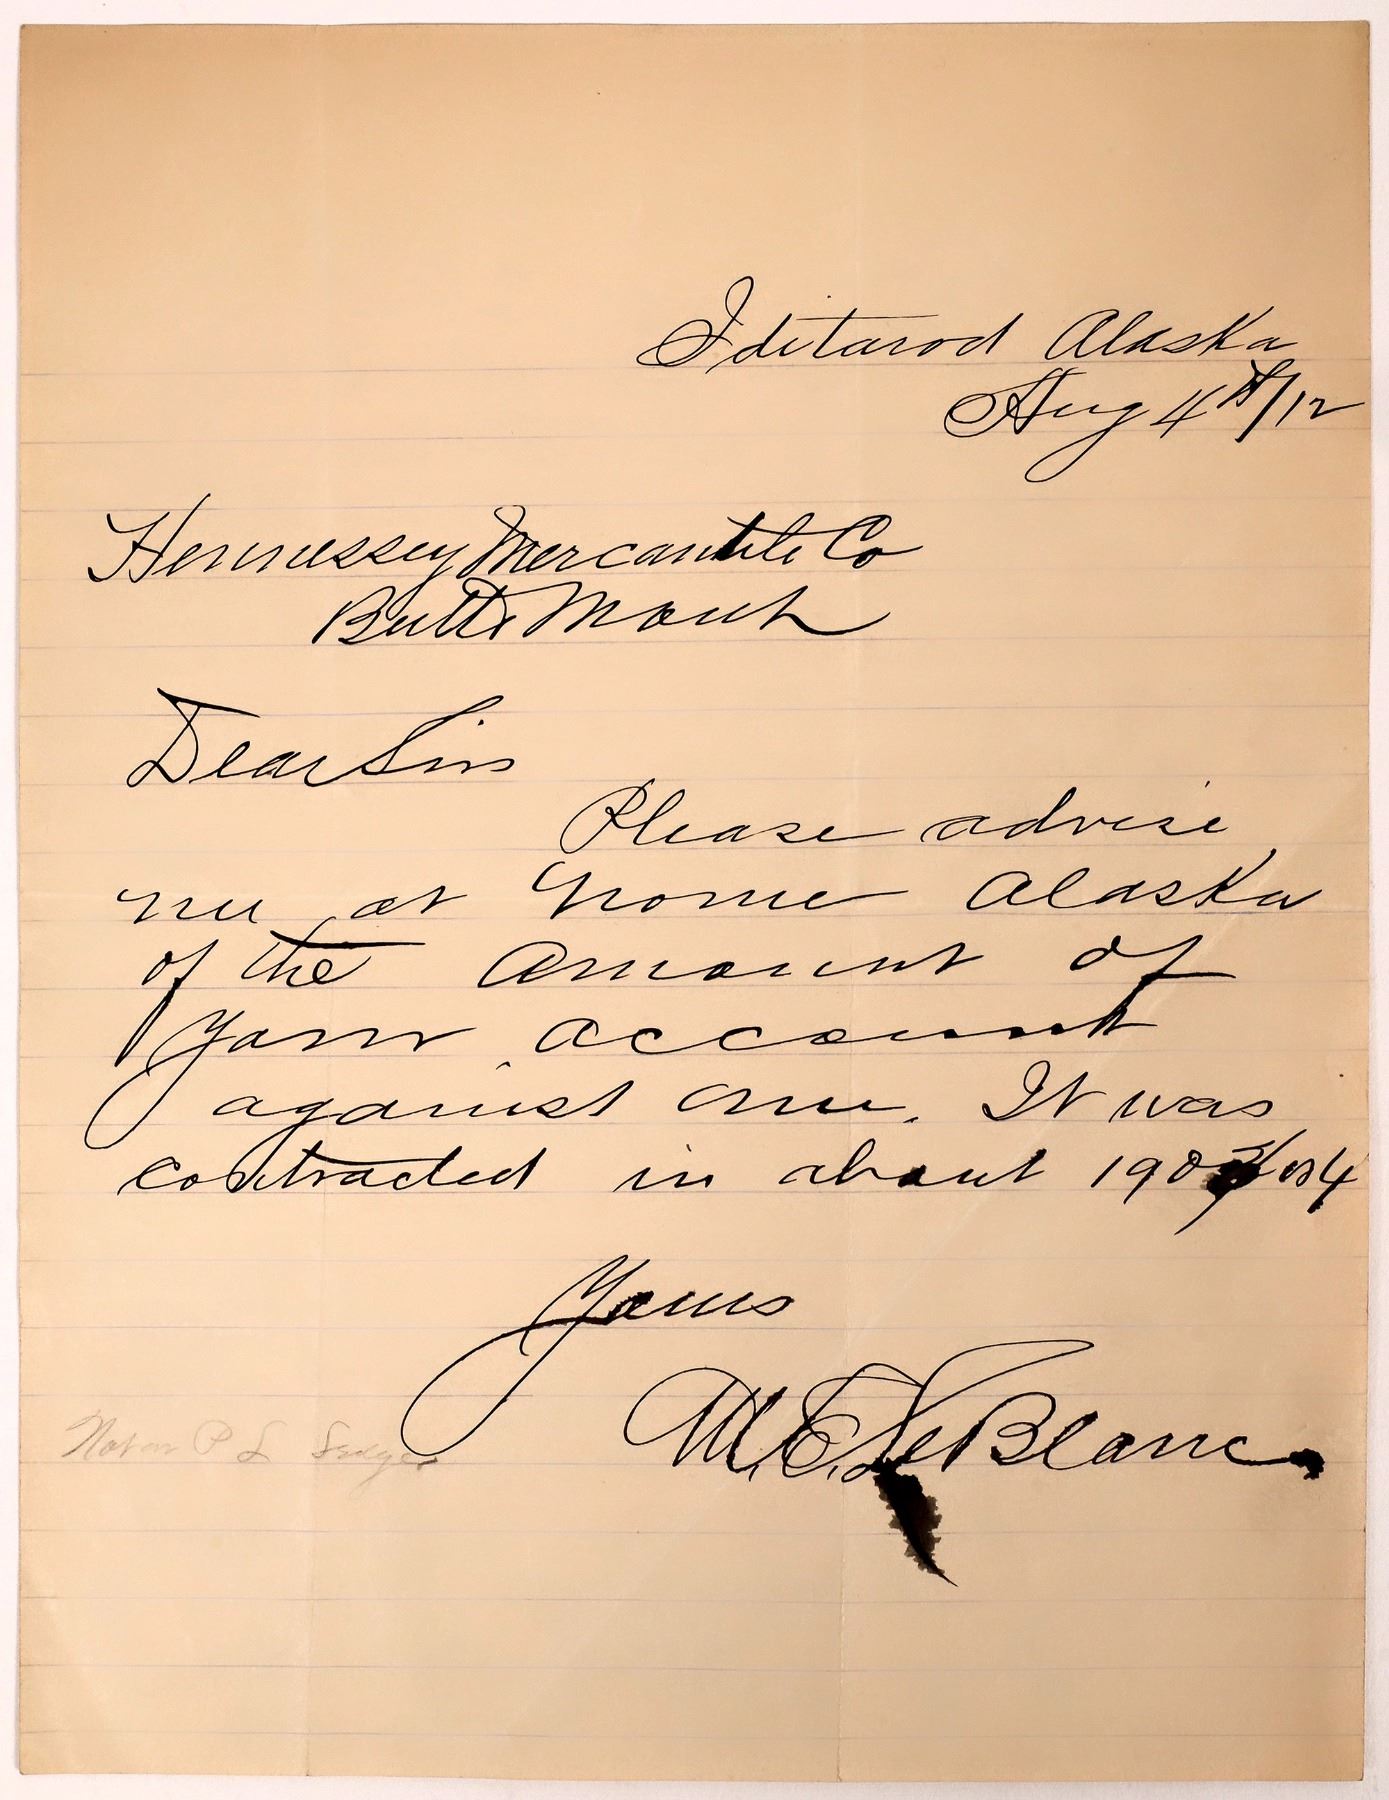 Iditarod Alaska
Aug 4th/12
Hennessey Mercantile Co
Butte Mont
Dear Sirs
Please advise
me at Nome Alaska
of the Amount of
your account
against me. It was
contracted in about 1903 or 4
Yours
M. E. LeBlanc.
Not on P L Ledger